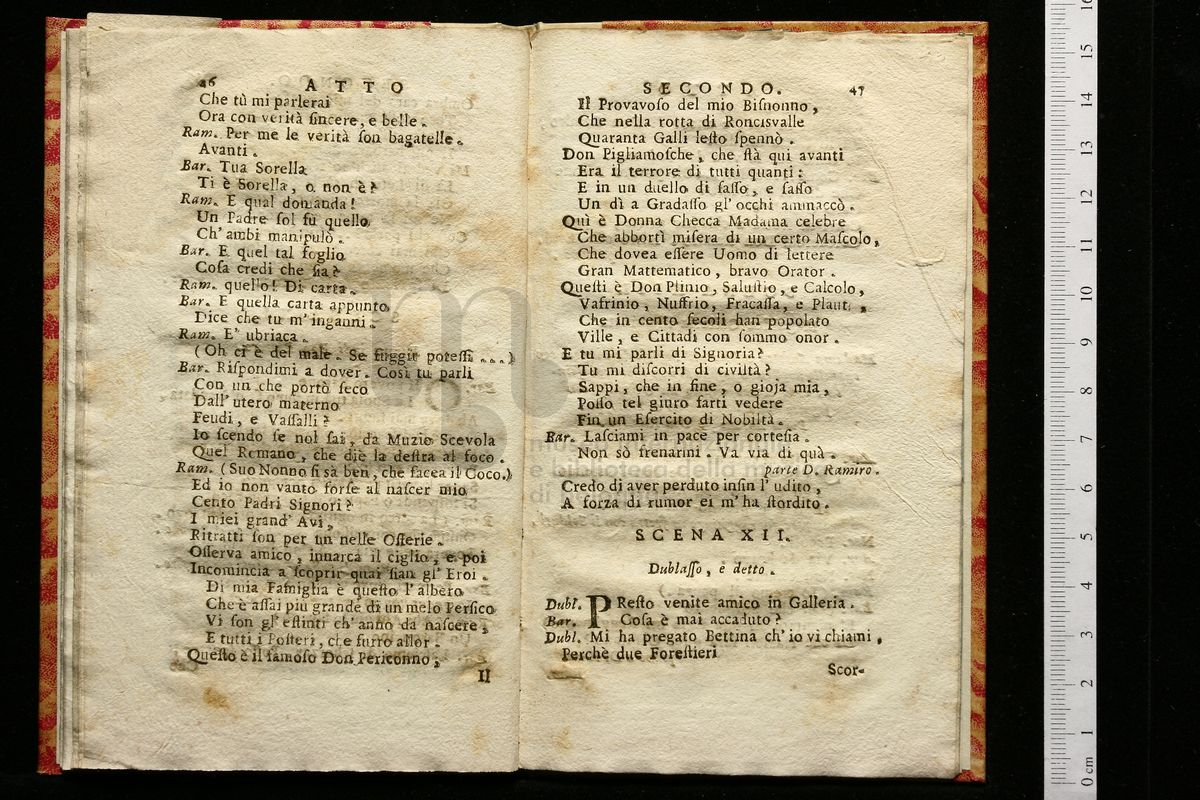 46 ATTO
Che tù mi parlerai
Ora con verità ſincere, e belle.
Ram. Per me le verità ſon bagatelle.
Avanti.
Bar. Tua Sorella
Ti è Sorella, o non è?
Ram. E qual domanda!
Un Padre ſol fu quello
Ch' ambi manipulò.
Bar. E quel tal foglio
Coſa credi che ſia?
Ram. quello! Di carta.
Bar. E quella carta appunto
Dice che tu m' inganni.
Ram. E' ubriaca.
(Oh ci è del male. Se fuggir poteſſi ...)
Bar. Riſpondimi a dover. Così tu parli
Con un che portò ſeco
Dall' utero materno
Feudi, e Vaſſalli?
Io ſcendo ſe nol ſai, da Muzio Scevola
Quel Romano, che diè la deſtra al foco.
Ram. (Suo Nonno ſi sa ben, che facea il Coco.)
Ed io non vanto forſe al naſcer mio
Cento Padri Signori?
I miei grand' Avi,
Ritratti ſon per un nelle Oſterie.
Oſſerva amico, innarca il ciglio, e poi
Incomincia a ſcoprir quai ſian gl' Eroi.
Di mia Famiglia è queſto l' albero
Che è aſſai più grande di un melo Perſico
Vi ſon gl' eſtinti ch' anno da naſcere,
E tutti i Poſteri, che furro allor.
Queſto è il famoſo Don Periconno,
Il
SECONDO. 47
Il Provavoſo del mio Biſnonno,
Che nella rotta di Roncisvalle
Quaranta Galli leſto ſpennò.
Don Pigliamoſche, che ſtà qui avanti
Era il terrore di tutti quanti:
E in un duello di ſaſſo, e ſaſſo
Un dì a Gradaſſo gl' occhi ammaccò.
Quì è Donna Checca Madama celebre
Che abbortì miſera di un certo Maſcolo,
Che dovea eſſere Uomo di lettere
Gran Mattematico, bravo Orator.
Queſti è Don Plinio, Saluſtio, e Calcolo,
Vafrinio, Nuffrio, Fracaſſa, e
Che in cento ſecoli han popolato
Ville, e Cittadi con ſommo onor.
E tu mi parli di Signoria?
Tu mi diſcorri di civiltà?
Sappi, che in fine, o gioja mia,
Poſſo tel giuro farti vedere
Fin un Eſercito di Nobiltà.
Bar. Laſciami in pace per corteſia.
Non sò frenarmi. Va via di quà.
parte D. Ramiro.
Credo di aver perduto inſin l' udito,
A forza di rumor ei m' ha ſtordito.
SCENA XII.
Dublaſſo, e detto.
Dubl. PReſto venite amico in Galleria.
Bar. Coſa è mai accaduto?
Dubl. Mi ha pregato Bettina ch' io vi chiami,
Perchè due Foreſtieri
Scor-